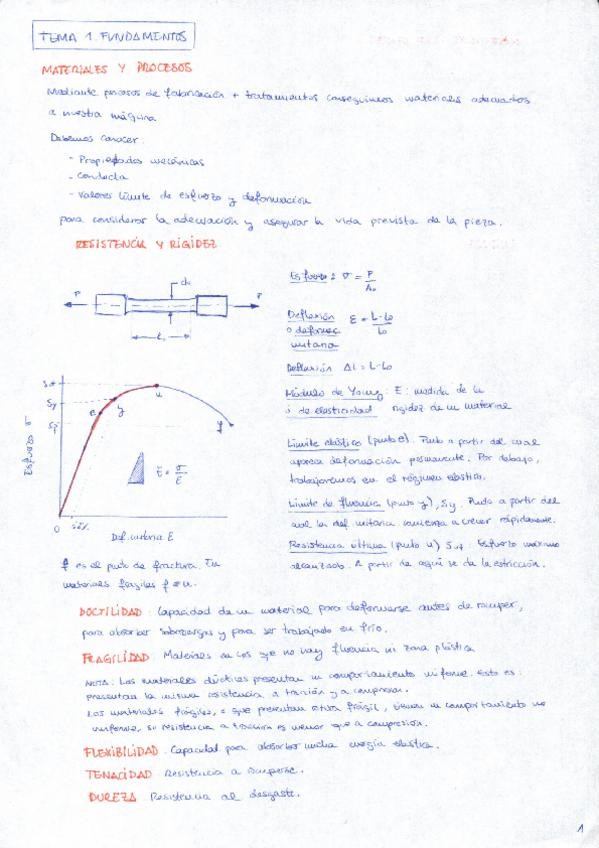 TEMA 1. FUNDAMENTOS
MATERIALES Y PROCESOS
Mediante procesos de fabricación + tratamientos conseguimos materiales adecuados
a nuestra máquina
Debemos conocer:
- Propiedades mecánicas
- Conducta
- Valores límite de esfuerzo y deformación
para considerar la adecuación y asegurar la vida prevista de la pieza.
RESISTENCIA Y RIGIDEZ
P
d₀
P
L
Esfuerzo: σ = P/A₀
Deflexión ε = L-L₀/L₀
o deformac
unitaria
Deflexión ΔL = L-L₀
Módulo de Young: E: medida de la
ó de elasticidad rigidez de un material
Límite elástico (punto e). Punto a partir del cual
aparece deformación permanente. Por debajo,
trabajaremos en el régimen elástico.
Límite de fluencia (punto y), Sy. Punto a partir del
cual la def. unitaria comienza a crecer rápidamente.
Resistencia última (punto u) Sut: Esfuerzo máximo
alcanzado. A partir de aquí se da la estricción.
Sut
Sy
Sf
e
y
u
f
Esfuerzo σ
E = σ/ε
0
Def. unitaria ε
f es el punto de fractura. En
materiales frágiles f≡u.
DUCTILIDAD: Capacidad de un material para deformarse antes de romper,
para absorber sobrecargas y para ser trabajado en frío.
FRAGILIDAD: Materiales en los que no hay fluencia ni zona plástica
NOTA: Los materiales dúctiles presentan un comportamiento uniforme. Esto es:
presentan la misma resistencia a tracción y a compresión.
Los materiales frágiles, o que presentan rotura frágil, tienen un comportamiento no
uniforme, su resistencia a tracción es menor que a compresión.
FLEXIBILIDAD: Capacidad para absorber mucha energía elástica.
TENACIDAD Resistencia a romperse.
DUREZA Resistencia al desgaste.
1